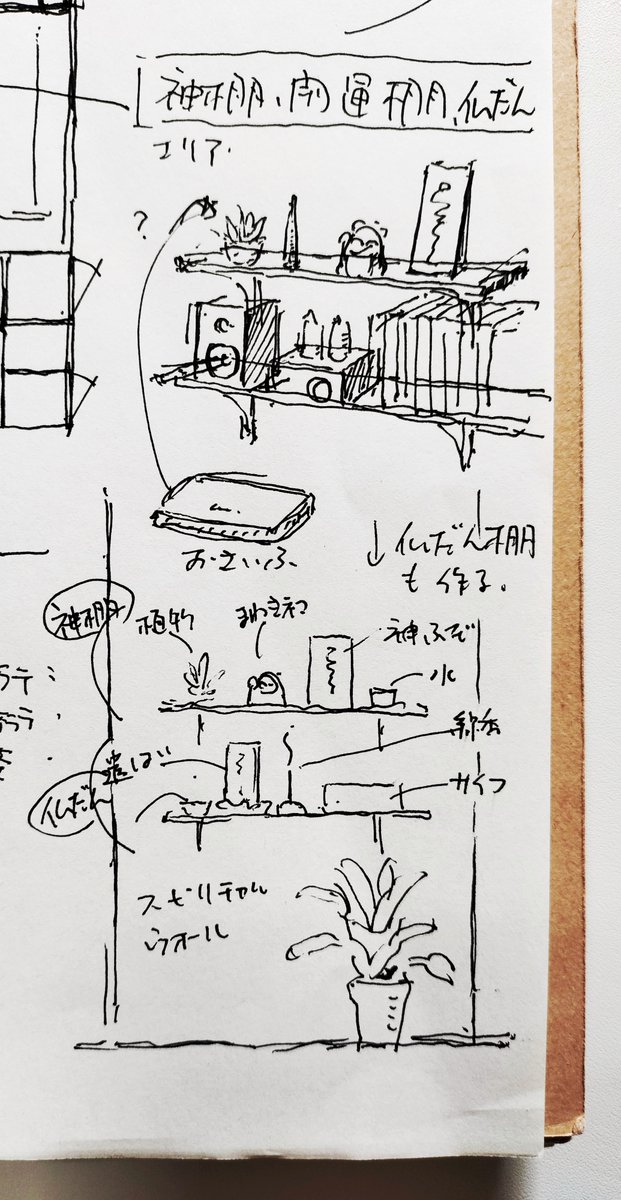 神棚、開運棚、仏だん
エリア.
?
おさいふ
↓仏だん棚
も作る。
神棚
植物
まねきネコ
神ふだ
水
線香
遺じば
サイフ
仏だん
スピリチャル
ウオール